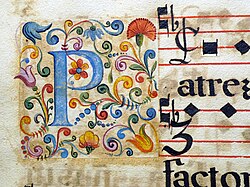 P
atrem
factor